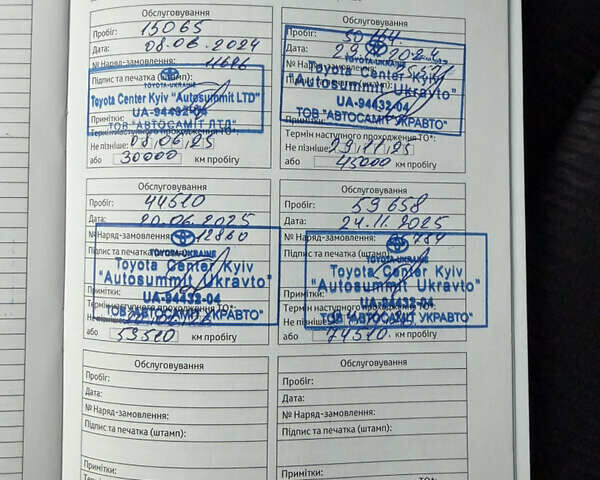 Обслуговування
Пробіг: 15065
Дата: 08.06.2024
№ Наряд-замовлення: 11686
Підпис та печатка (штамп):
TOYOTA-UKRAINE
Toyota Center Kyiv "Autosummit LTD"
UA-94432-04
ТОВ "АВТОСАМІТ ЛТД"
Примітки:
Термін наступного проходження ТО*:
Не пізніше: 08/06/25
або 30000 км пробігу
Обслуговування
Пробіг:
Дата:
№ Наряд-замовлення:
Підпис та печатка
TOYOTA-UKRAINE
Toyota Center Kyiv
"Autosummit Ukravto"
UA-94432-04
ТОВ "АВТОСАМІТ УКРАВТО"
Примітки:
Термін наступного проходження ТО*:
Не пізніше: 29/11/25
або 45000 км пробігу
Обслуговування
Пробіг: 44510
Дата: 20.06.2025
№ Наряд-замовлення: 12860
Підпис та печатка
TOYOTA-UKRAINE
Toyota Center Kyiv
"Autosummit Ukravto"
UA-94432-04
ТОВ "АВТОСАМІТ УКРАВТО"
Примітки:
Термін наступного проходження ТО*:
Не пізніше:
або 59510 км пробігу
Обслуговування
Пробіг: 59658
Дата: 24.11.2025
№ Наряд-замовлення:
Підпис та печатка (штамп):
TOYOTA-UKRAINE
Toyota Center Kyiv
"Autosummit Ukravto"
UA-94432-04
ТОВ "АВТОСАМІТ УКРАВТО"
Примітки:
Термін наступного проходження ТО*:
Не пізніше:
або 74510 км пробігу
Обслуговування
Пробіг:
Дата:
№ Наряд-замовлення:
Підпис та печатка (штамп):
Примітки:
Термін наступного проходження ТО*:
Обслуговування
Пробіг:
Дата:
№ Наряд-замовлення:
Підпис та печатка (штамп):
Примітки:
Термін наступного проходження ТО*: